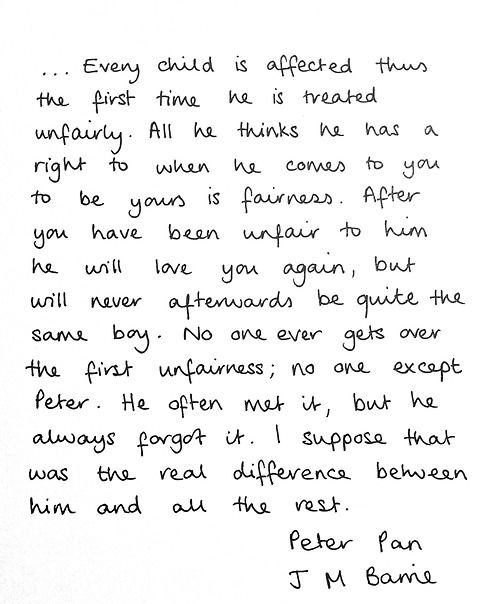 ... Every child is affected thus
the first time he is treated
unfairly. All he thinks he has a
right to when he comes to you
to be yours is fairness. After
you have been unfair to him
he will love you again, but
will never afterwards be quite the
same boy. No one ever gets over
the first unfairness; no one except
Peter. He often met it, but he
always forgot it. I suppose that
was the real difference between
him and all the rest.
Peter Pan
J M Barrie